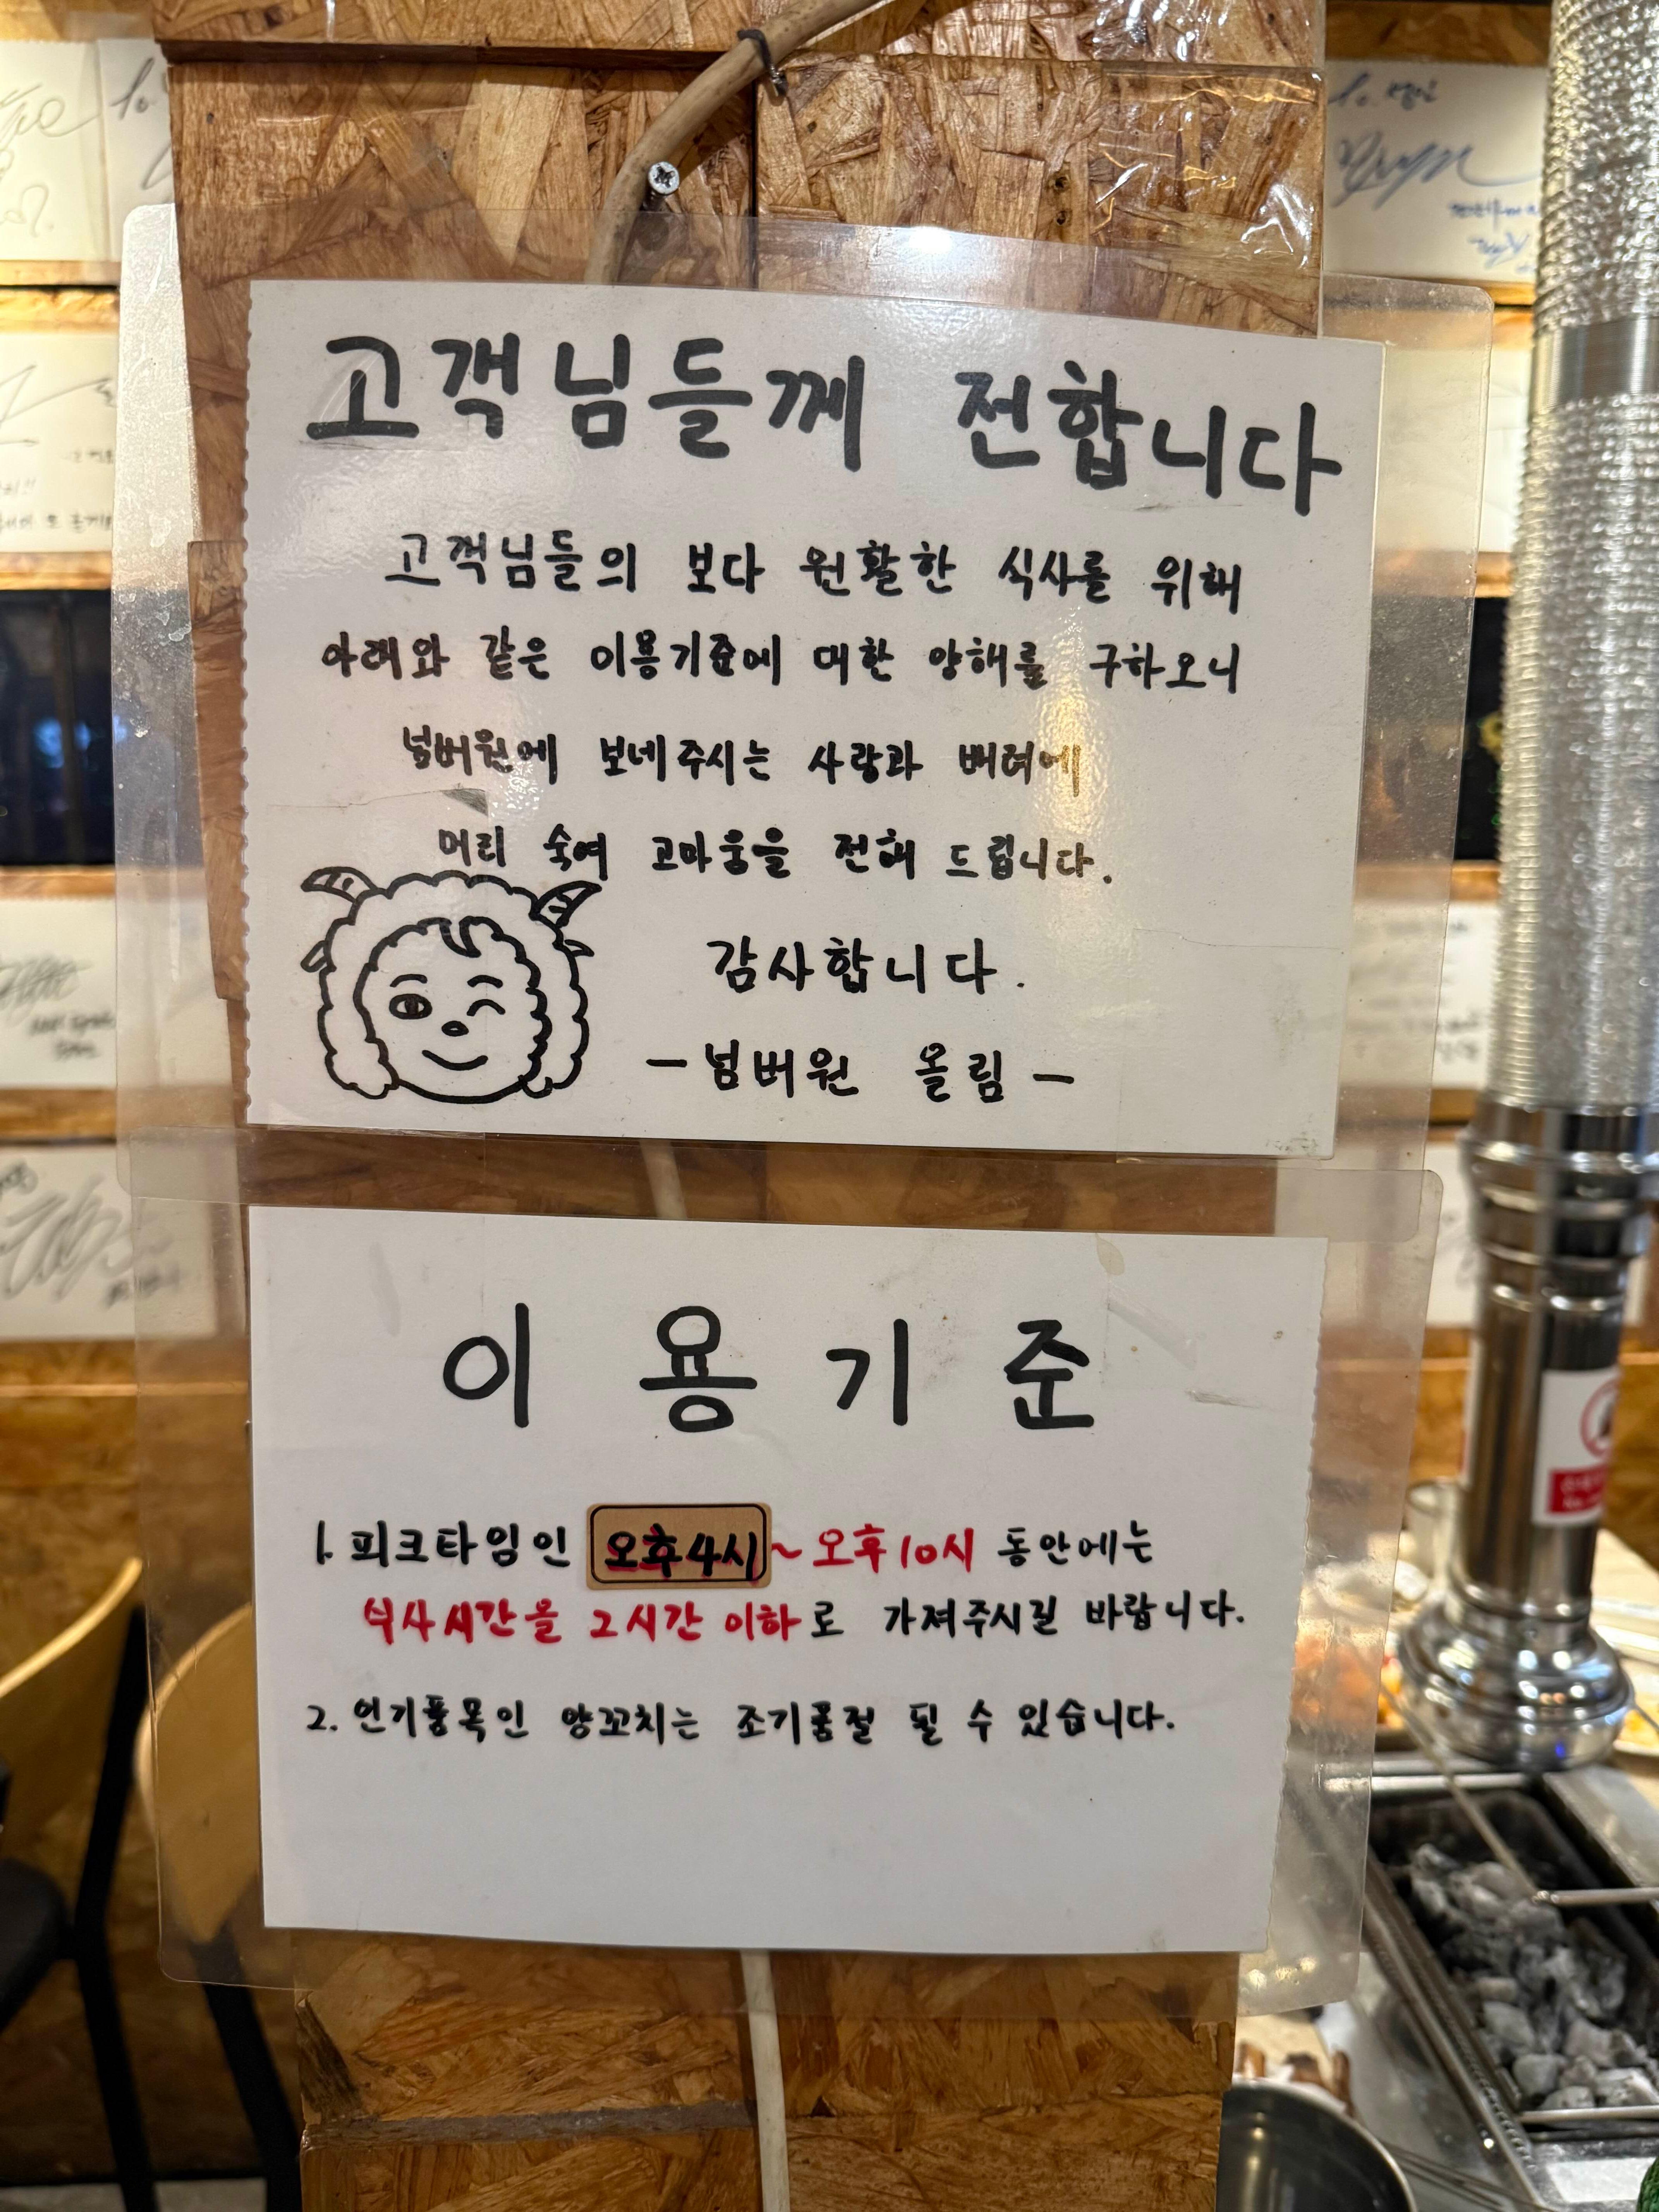 고객님들께 전합니다
고객님들의 보다 원활한 식사를 위해
아래와 같은 이용기준에 대한 양해를 구하오니
넘버원에 보네주시는 사랑과 배려에
머리 숙여 고마움을 전해 드립니다.
감사합니다.
-넘버원 올림-
이용기준
1. 피크타임인 오후4시~오후10시 동안에는
식사시간을 2시간 이하로 가져주시길 바랍니다.
2. 인기품목인 양꼬치는 조기품절 될 수 있습니다.